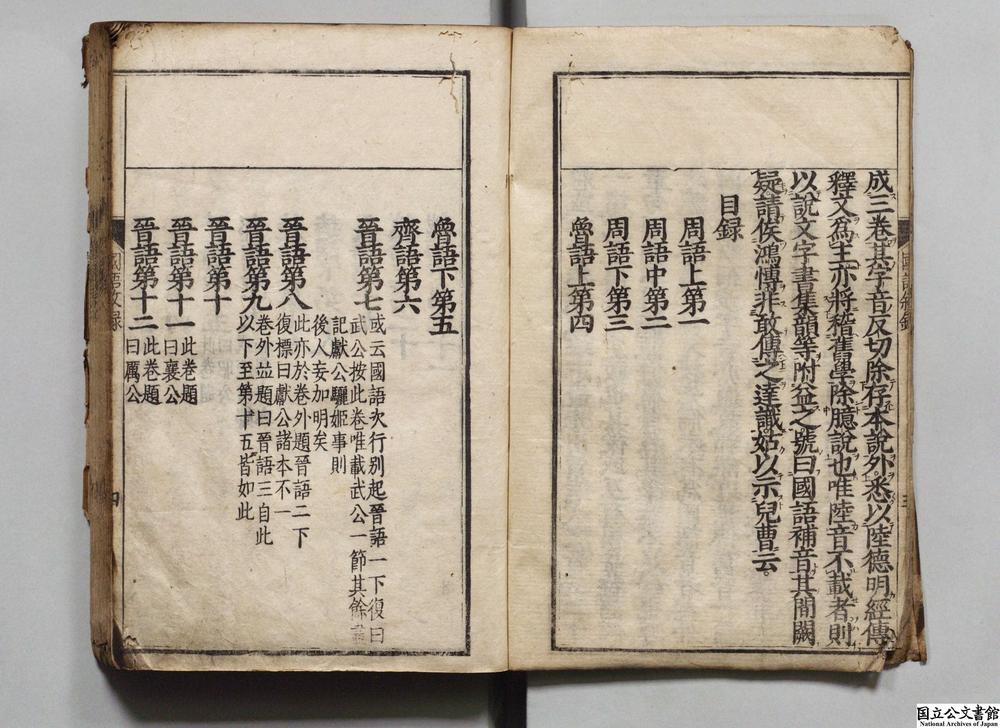 成三卷其字音反切除存本說外悉以陸德明經傳
釋文爲主亦將稽舊學除臆說也唯陸音不載者則
以說文字書集韻等附益之號曰國語補音其間闕
疑請俟鴻博非敢傳之達識姑以示兒曹云
目録
周語上第一
周語中第二
周語下第三
魯語上第四
魯語下第五
齊語第六
晉語第七
或云國語次行别起晉語一下復曰
武公按此卷唯載武公一節其餘
記獻公驪姬事則
後人妄加明矣
晉語第八
此亦於卷外題晉語二下
復標曰獻公諸本不一
晉語第九
卷外並題曰晉語三自此
以下至第十五皆如此
晉語第十
晉語第十一
此卷題
曰襄公
晉語第十二
此卷題
曰厲公
四
国立公文書館
National Archives of Japan